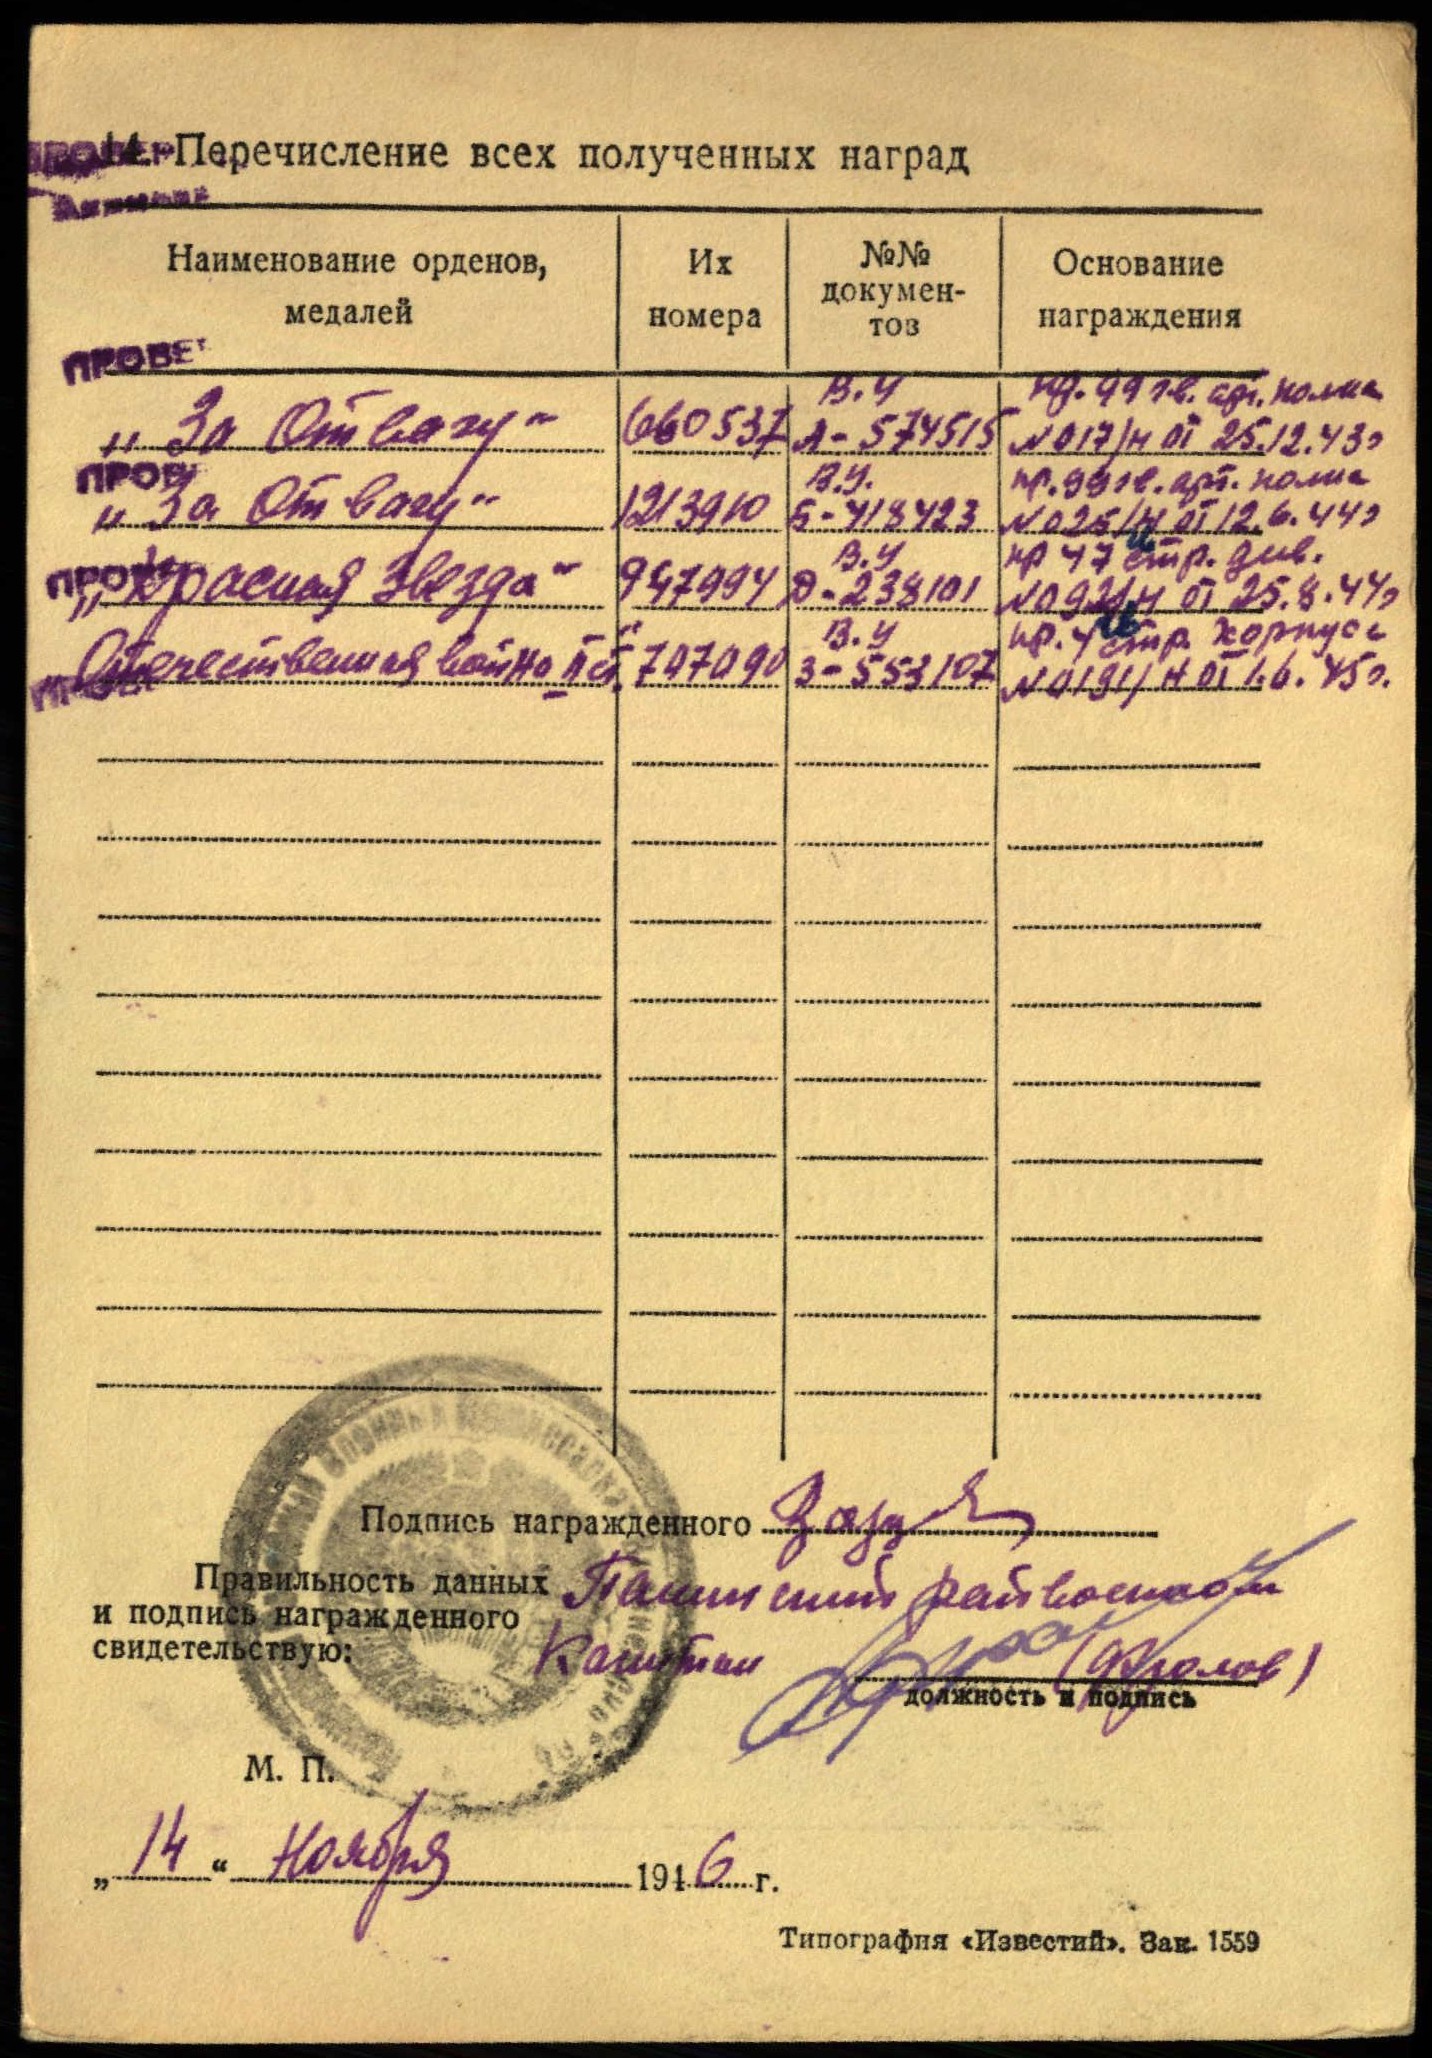 14. Перечисление всех полученных наград
Наименование орденов, медалей
Их номера
№№ докумен-
тов
Основание награждения
ПРОВЕ
„За Отвагу“ 660537 В.У А-574515 пр. 99 гв. арт. полка
№017/н от 25.12.43г
ПРОВ
„За Отвагу“ 1213910 В.У. Б-418423 пр. 99 гв. арт. полка
№025/н от 12.6.44г
„Красная Звезда“ 947994 В.У Д-238101 пр 47 стр. див.
от 25.8.44г
„Отечественная война II ст.“ 707090 В.У З-553107 пр. 4 стр. корпуса
№0191/н от 1.6.45г.
Подпись награжденного
Правильность данных
и подпись награжденного
свидетельствую:
райвоенком
Капитан (Фролов)
должность и подпись
М. П.
„14“ Ноября 1946 г.
Типография «Известий». Зак. 1559